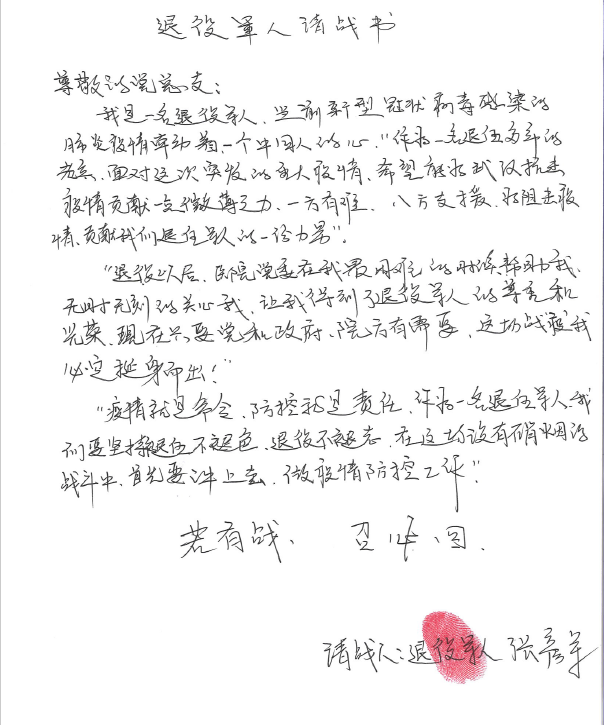 退役军人请战书
尊敬的党总支:
我是一名退役军人,当前新型冠状病毒感染的
肺炎疫情牵动着一个中国人的心,"作为一名退伍多年的
老兵,面对这次突发的重大疫情,希望能为武汉抗击
疫情贡献一点微薄之力,一方有难,八方支援,为阻击疫
情,贡献我们退伍军人的一份力量"。
"退役以后,医院党委在我最困难的时候帮助我,
无时无刻的关心我,让我得到了退役军人的尊重和
光荣,现在只要党和政府、院方有需要,这场战疫我
必定挺身而出!"
"疫情就是命令,防控就是责任,作为一名退伍军人,我
们要坚持退伍不褪色,退役不退志,在这场没有硝烟的
战斗中,首先要冲上去,做疫情防控工作"。
若有战、召必回.
请战人:退役军人 张